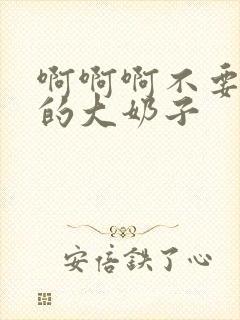 啊啊啊不要
的大奶子
安倍铁了心